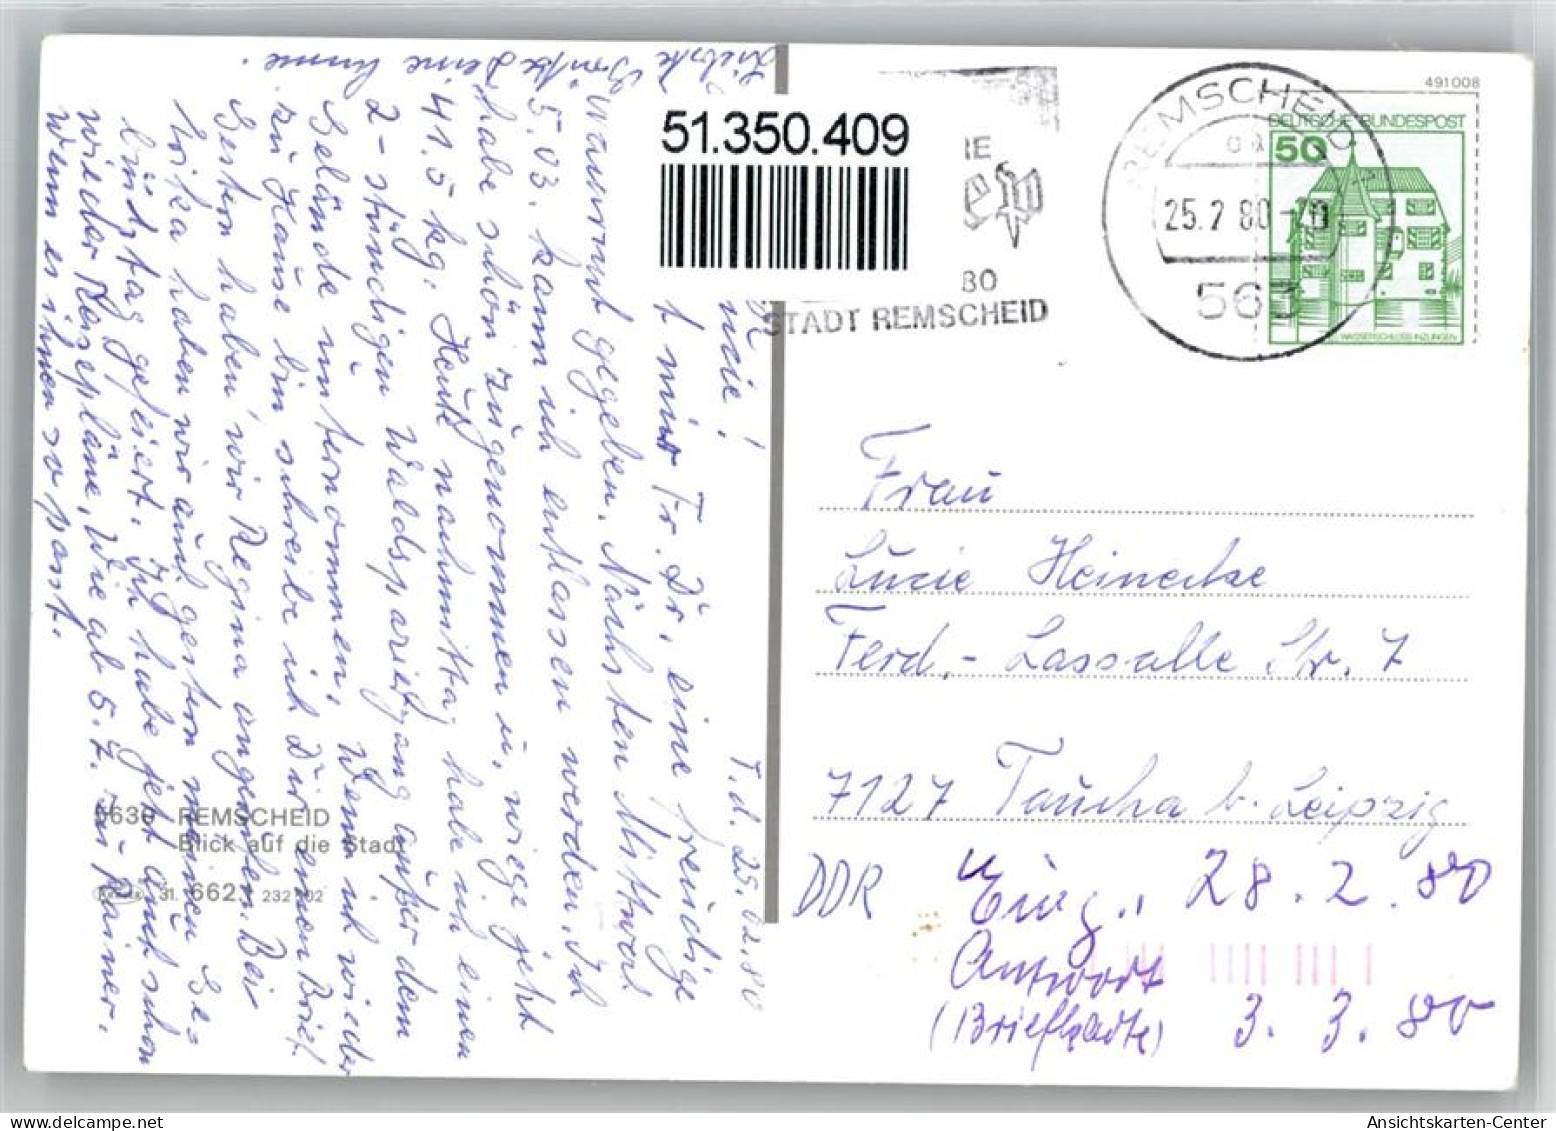 T. d. 25.02.80
nnie!
t mir Fr. Dr. eine freudige
gegeben. Nächsten Mittwoch
5.03. kann ich entlassen werden. Ich
habe schon zugenommen u. wiege jetzt
41.5 kg. Heute nachmittag habe ich einen
2-stündigen Waldspaziergang außer dem
Gelände unternommen. Wenn ich wieder
zu Hause bin schreibe ich Dir einen Brief.
Gestern haben wir Regina angerufen. Bei
haben wir auch gestern meinen Ge-
burtstag gefeiert. Ich habe jetzt auch schon
wieder Reisepläne, wie ab 5.7. zu Rainer.
Wenn es ihnen so passt.
Deine
5630 REMSCHEID
Blick auf die Stadt
31. 662
51.350.409
IE
80
STADT REMSCHEID
REMSCHEID 1
25.2.80
563
491008
DEUTSCHE BUNDESPOST
50
WASSERSCHLOSS INZLINGEN
Frau
Luzie Heinecke
Ferd.-Lassalle Str. 7
7127 Taucha b. Leipzig
DDR
Eing., 28.2.80
Antwort
(Briefkarte) 3.3.80
Ansichtskarten-Center